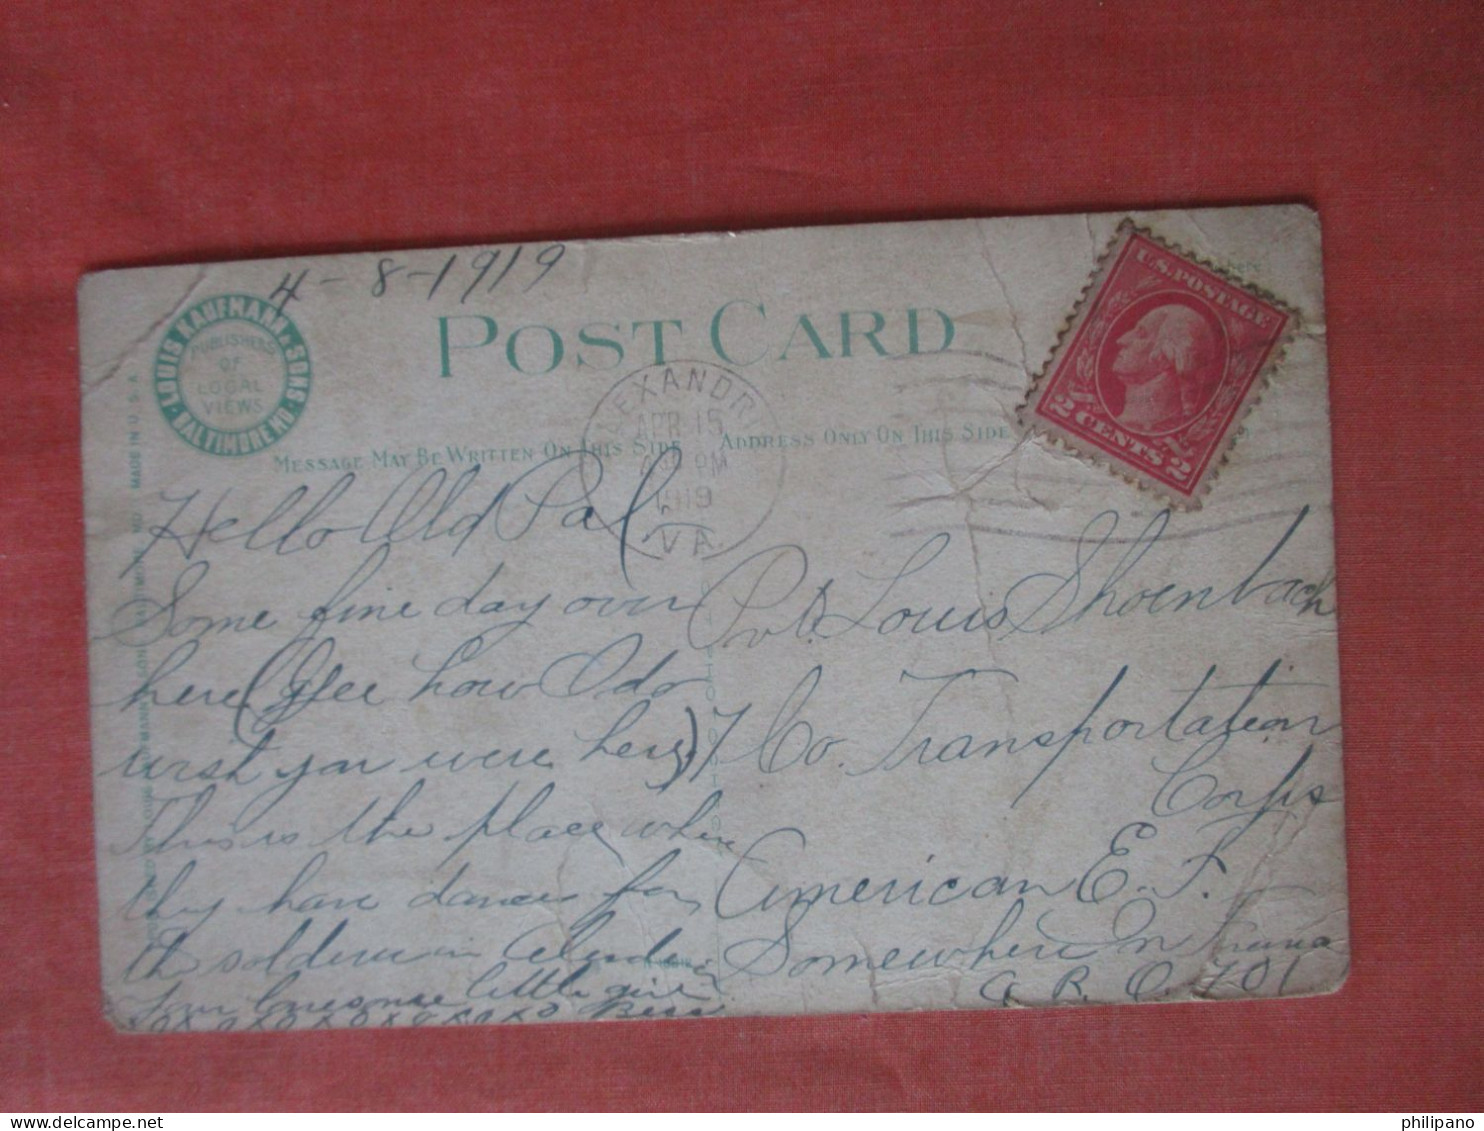 4-8-1919
LOUIS KAUFMANN & SONS
BALTIMORE MD.
PUBLISHERS
OF
LOCAL
VIEWS
POST CARD
MESSAGE MAY BE WRITTEN ON THIS SIDE
ADDRESS ONLY ON THIS SIDE
ALEXANDRI
APR 15
PM
1919
VA.
U.S. POSTAGE
2 CENTS 2
MADE IN U.S.A.
Hello Old Pal,
Some fine day over
here (Gee how I do
wish you were here)
This is the place where
they have dances for
the soldiers in
Your lonesome little girl
Bess
Pvt. Louis Shoenbach
7 Co. Transportation
Corps
American E. F.
Somewhere In France
A. P. O. 701
philipano